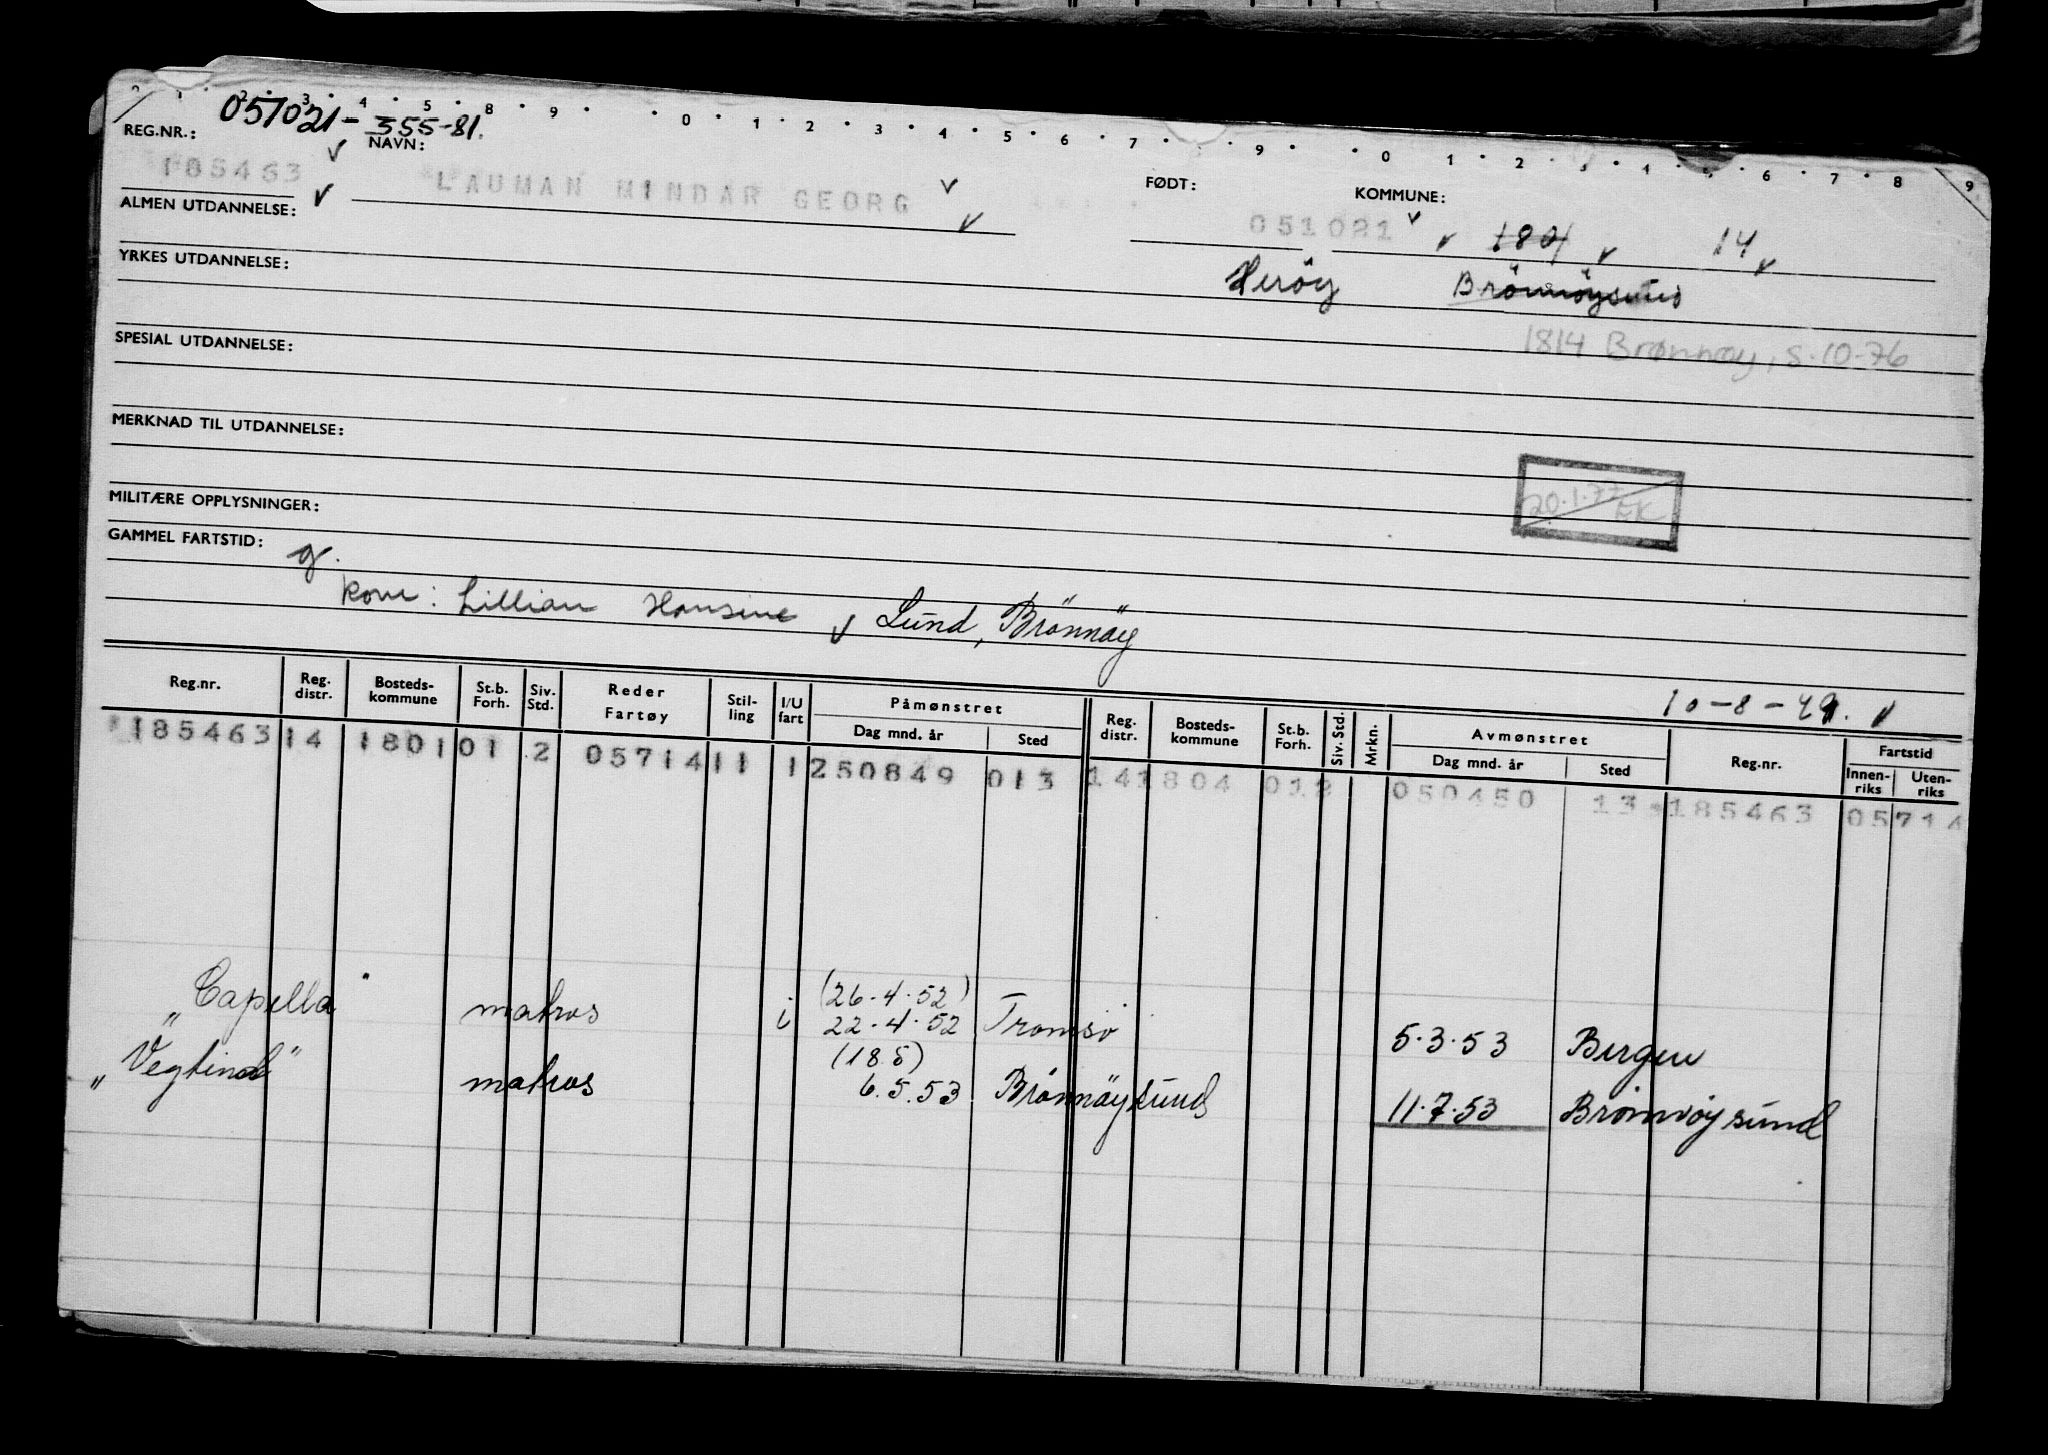 2 1 · 2 · 3 · 4 · 5 · 8 · 9 · 0 · 1 · 2 · 3 · 4 · 5 · 6 · 7 · 9 · 0 1 · 2 · 3 · 4 · 5 · 6 · 7 · 8 9
057021-355-81.
REG.NR.: NAVN:
185463 LAUMAN MINDAR GEORG FØDT: KOMMUNE:
051021 1804 14
ALMEN UTDANNELSE:
Herøy Brönnöysund
YRKES UTDANNELSE:
1814 Brønnøy, 5-10-76
SPESIAL UTDANNELSE:
MERKNAD TIL UTDANNELSE:
20.1.77 EK
MILITÆRE OPPLYSNINGER:
GAMMEL FARTSTID:
g.
kone: Lillian Hansine Lund, Brönnöy
10-8-49.
Reg.nr. Reg. distr. Bosteds- kommune St.b. Forh. Siv. Std. Reder Fartøy Stil- ling I/U fart Påmønstret Dag mnd. år Sted Reg. distr. Bosteds- kommune St.b. Forh. Siv. Std. Mrkn. Avmønstret Dag mnd. år Sted Reg.nr. Fartstid Innen- riks Uten- riks
185463 14 1801 01 2 05714 11 1 250849 013 14 1804 012 050450 13 185463 05714
(26.4.52)
„Capella" matros i 22.4.52 Tromsö 5.3.53 Bergen
(18.5)
„Vegtind" matros 6.5.53 Brönnöysund 11.7.53 Brönnöysund